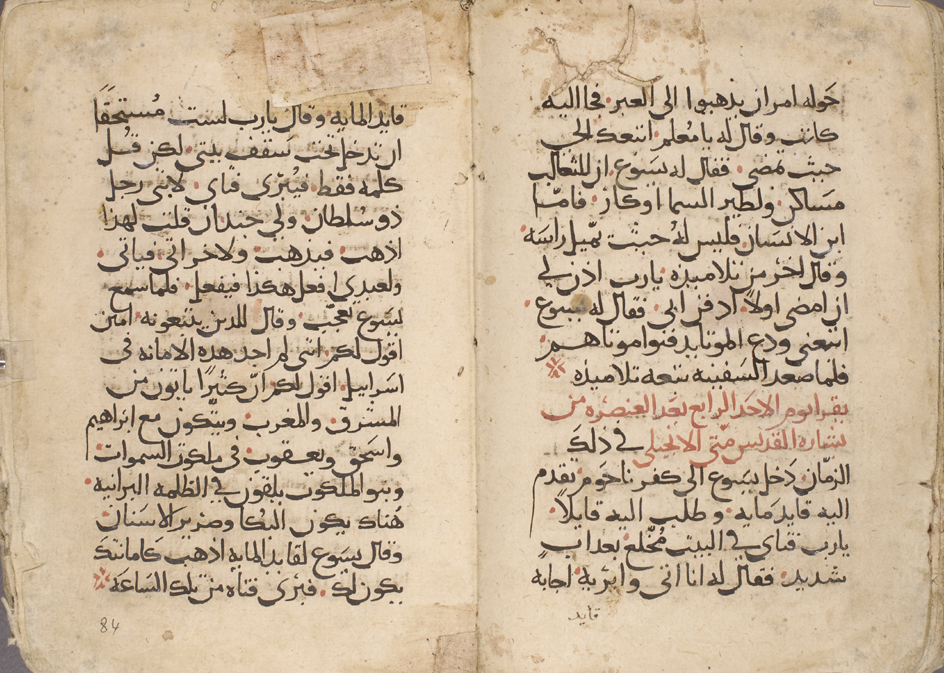 حوله امر ان يذهبوا الى العبر فجا اليه
كاتب وقال له يا معلم اتبعك الى
حيث تمضى فقال له يسوع ان للثعالب
مساكن ولطير السما اوكار فاما
ابن الانسان فليس له حيث يميل راسه
وقال اخر من تلاميذه يارب اذن لي
ان امضى اولا ادفن ابي فقال له يسوع
اتبعنى ودع الموتا يدفنوا موتاهم
فلما صعد السفينه تبعه تلاميذه
يقرا يوم الاحد الرابع بعد العنصره من
بشارة القديس متى الانجيلي في ذلك
الزمان دخل يسوع الى كفرناحوم تقدم
اليه قايد مايه وطلب اليه قايلا
يارب فتاي في البيت مخلع بعداب
شديد فقال له انا اتى وابريه اجابه
قايد
قايد المايه وقال يارب لست مستحقا
ان تدخل تحت سقف بيتى لكن قل
كلمه فقط فيبرى فتاي لانى رجل
ذو سلطان ولى جند ان قلت لهذا
اذهب فيذهب ولاخر اتى فياتى
ولعبدي افعل هكذا فيفعل فلما سمع
يسوع تعجب وقال للذين يتبعونه امين
اقول لكم اننى لم اجد هذه الامانه فى
اسراييل اقول لكم ان كثيرا ياتون من
المشرق والمغرب ويتكون مع ابراهيم
واسحق ويعقوب فى ملكوت السموات
وبنو الملكوت يلقون في الظلمه البرانيه
هناك يكون البكا وصرير الاسنان
وقال يسوع لقايد المايه اذهب كامانتك
يكون لك فبرى فتاه من تلك الساعه
84